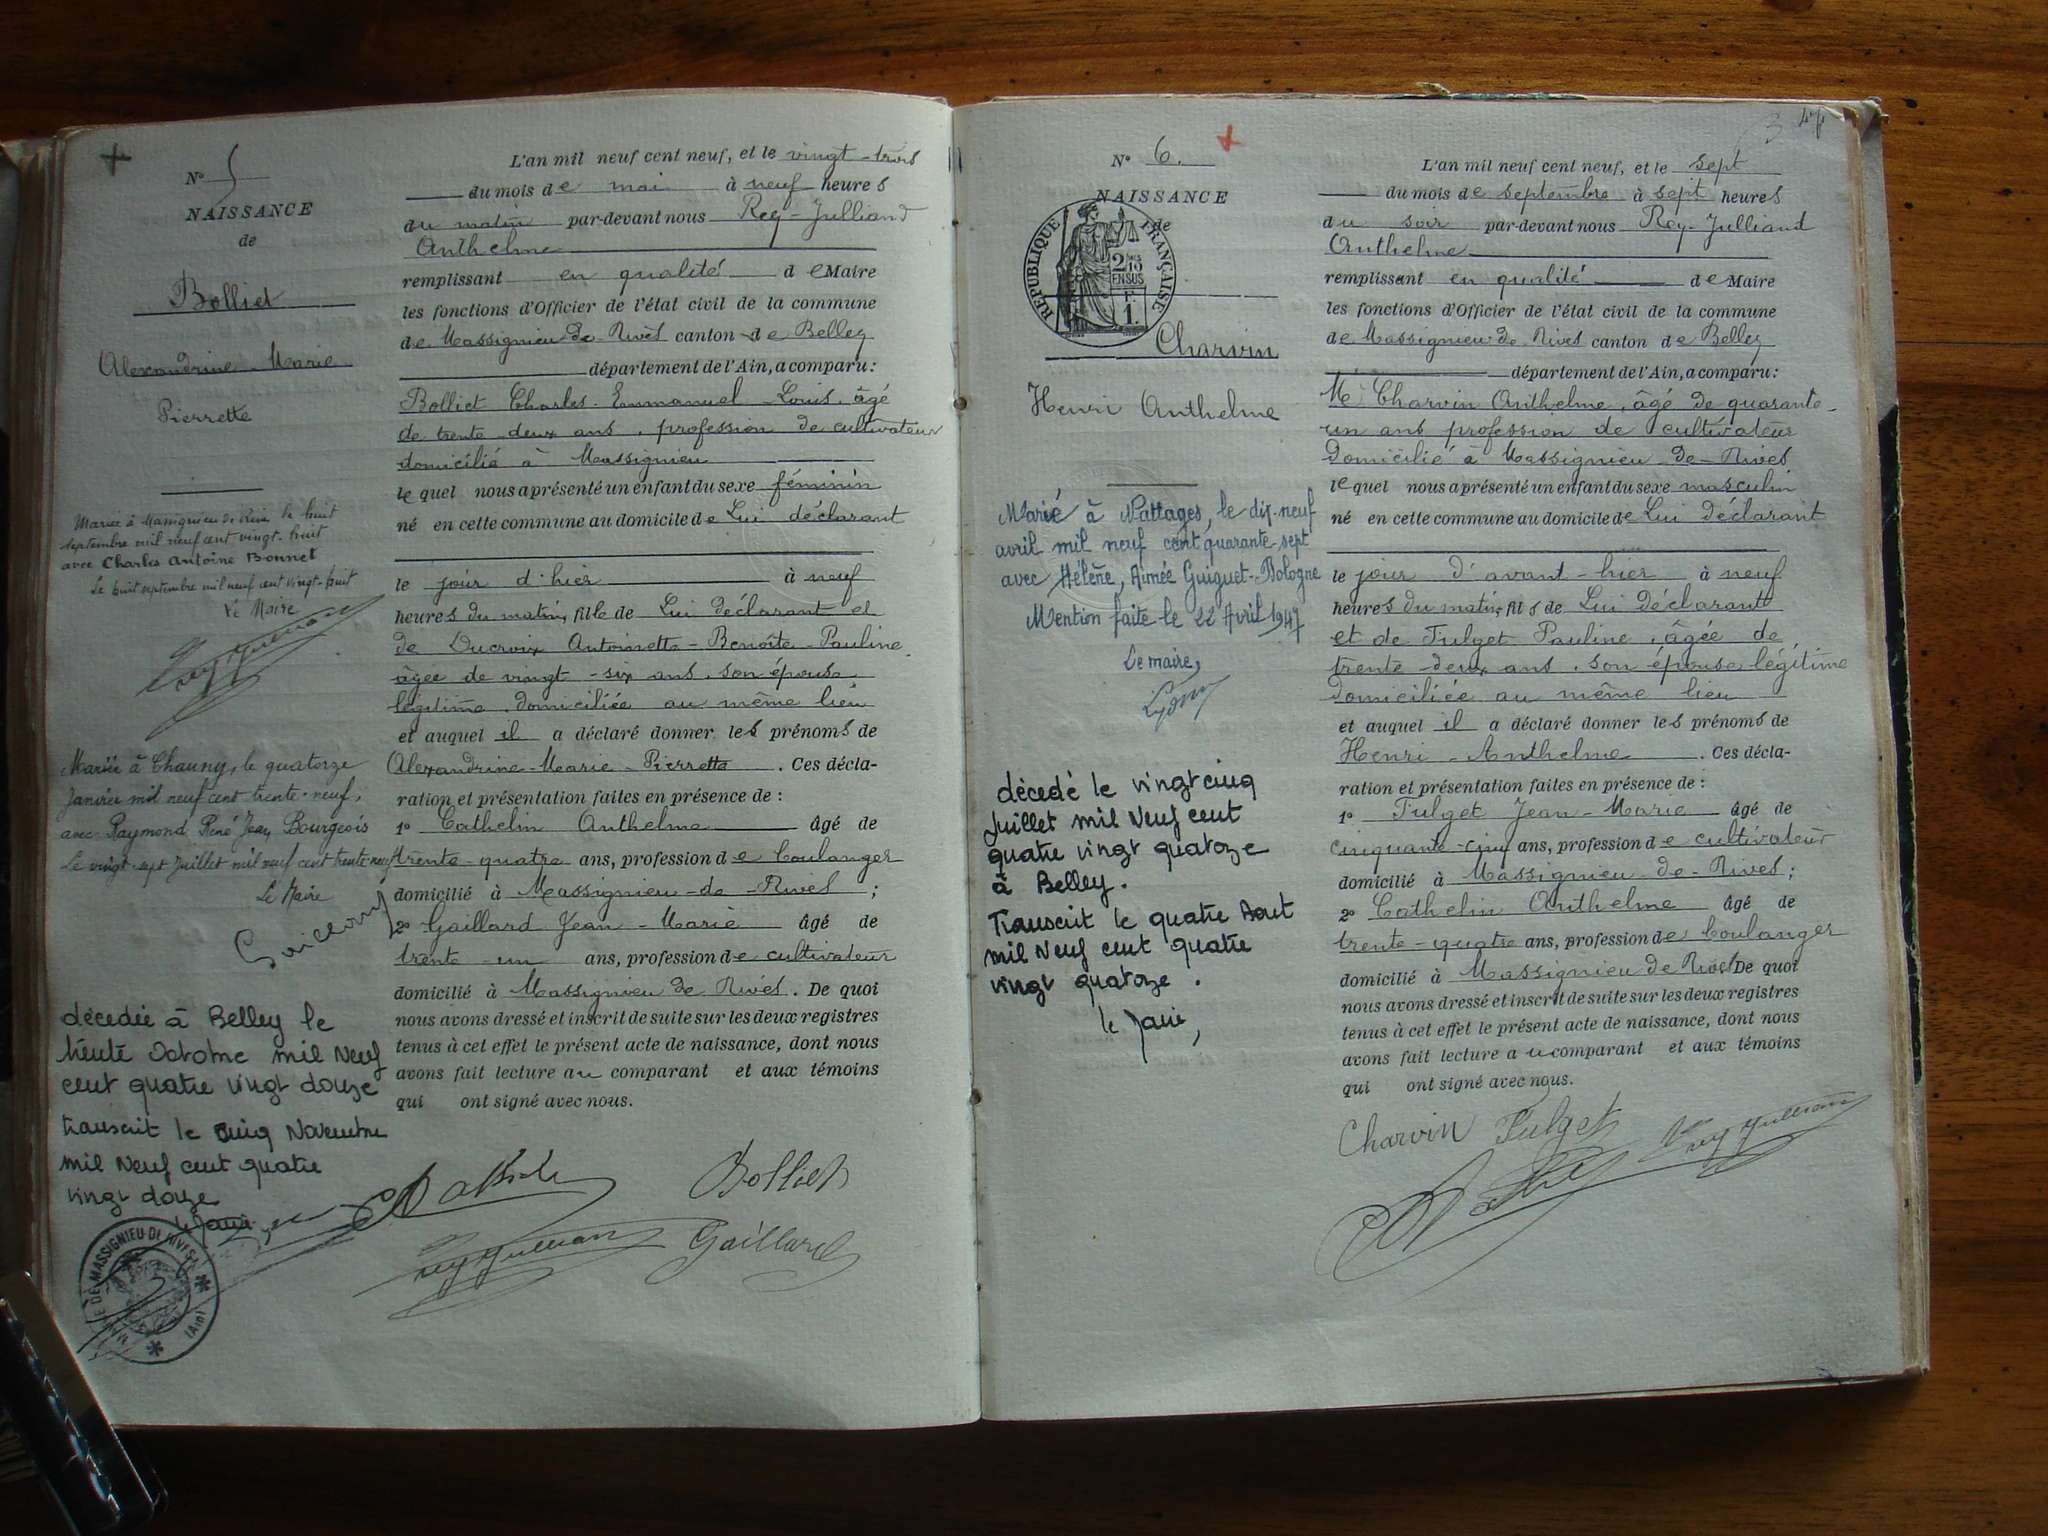 N° 5
NAISSANCE
de
Bolliet
Alexandrine Marie
Pierrette
Mariée à Massignieu de Rives le huit
septembre mil neuf cent vingt-huit
avec Charles Antoine Bonnet
Le huit septembre mil neuf cent vingt-huit
Le Maire
Mariée à Chauny, le quatorze
Janvier mil neuf cent trente-neuf,
avec Raymond René Jean Bourgeois
Le vingt-sept Juillet mil neuf cent trente neuf
Le Maire
décédée à Belley le
trente Octobre mil Neuf
cent quatre vingt douze
transcrit le cinq Novembre
mil Neuf cent quatre
vingt douze
le Maire
MAIRIE DE MASSIGNIEU DE RIVES (Ain)
L'an mil neuf cent neuf, et le vingt-trois
du mois de mai à neuf heures
du matin par-devant nous Rey-Julliand
Anthelme
remplissant en qualité de Maire
les fonctions d'Officier de l'état civil de la commune
de Massignieu de Rives canton de Belley
département de l'Ain, a comparu :
Bolliet Charles Emmanuel Louis, âgé
de trente-deux ans, profession de cultivateur
domicilié à Massignieu
lequel nous a présenté un enfant du sexe féminin
né en cette commune au domicile de Lui déclarant
le jour d'hier à neuf
heures du matin, fille de Lui déclarant et
de Ducroix Antoinette-Benoîte-Pauline,
âgée de vingt-six ans, son épouse
légitime, domiciliée au même lieu
et auquel il a déclaré donner les prénoms de
Alexandrine-Marie-Pierrette. Ces décla-
ration et présentation faites en présence de :
1° Cathelin Anthelme âgé de
trente-quatre ans, profession de boulanger
domicilié à Massignieu-de-Rives ;
2° Gaillard Jean-Marie âgé de
trente-un ans, profession de cultivateur
domicilié à Massignieu de Rives. De quoi
nous avons dressé et inscrit de suite sur les deux registres
tenus à cet effet le présent acte de naissance, dont nous
avons fait lecture au comparant et aux témoins
qui ont signé avec nous.
Bolliet
Gaillard
N° 6.
NAISSANCE
de
RÉPUBLIQUE FRANÇAISE
2 DMES 1/2
EN SUS
F.
1.
Charvin
Henri Anthelme
Marié à Nattages, le dix-neuf
avril mil neuf cent quarante-sept
avec Hélène, Aimée Guiguet-Bologne
Mention faite le 22 Avril 1947
Le maire,
décédé le vingt cinq
Juillet mil Neuf cent
quatre vingt quatorze
à Belley.
Transcrit le quatre Aout
mil Neuf cent quatre
vingt quatorze.
le Maire,
L'an mil neuf cent neuf, et le sept
du mois de septembre à sept heures
du soir par-devant nous Rey-Julliand
Anthelme
remplissant en qualité de Maire
les fonctions d'Officier de l'état civil de la commune
de Massignieu de Rives canton de Belley
département de l'Ain, a comparu :
Mr Charvin Anthelme, âgé de quarante-
un ans profession de cultivateur
domicilié à Massignieu-de-Rives
lequel nous a présenté un enfant du sexe masculin
né en cette commune au domicile de Lui déclarant
le jour d'avant-hier à neuf
heures du matin, fils de Lui déclarant
et de Tulget Pauline, âgée de
trente-deux ans, son épouse légitime
domiciliée au même lieu
et auquel il a déclaré donner les prénoms de
Henri-Anthelme. Ces décla-
ration et présentation faites en présence de :
1° Tulget Jean-Marie âgé de
cinquante-cinq ans, profession de cultivateur
domicilié à Massignieu-de-Rives ;
2° Cathelin Anthelme âgé de
trente-quatre ans, profession de boulanger
domicilié à Massignieu de Rives. De quoi
nous avons dressé et inscrit de suite sur les deux registres
tenus à cet effet le présent acte de naissance, dont nous
avons fait lecture au comparant et aux témoins
qui ont signé avec nous.
Charvin Tulget